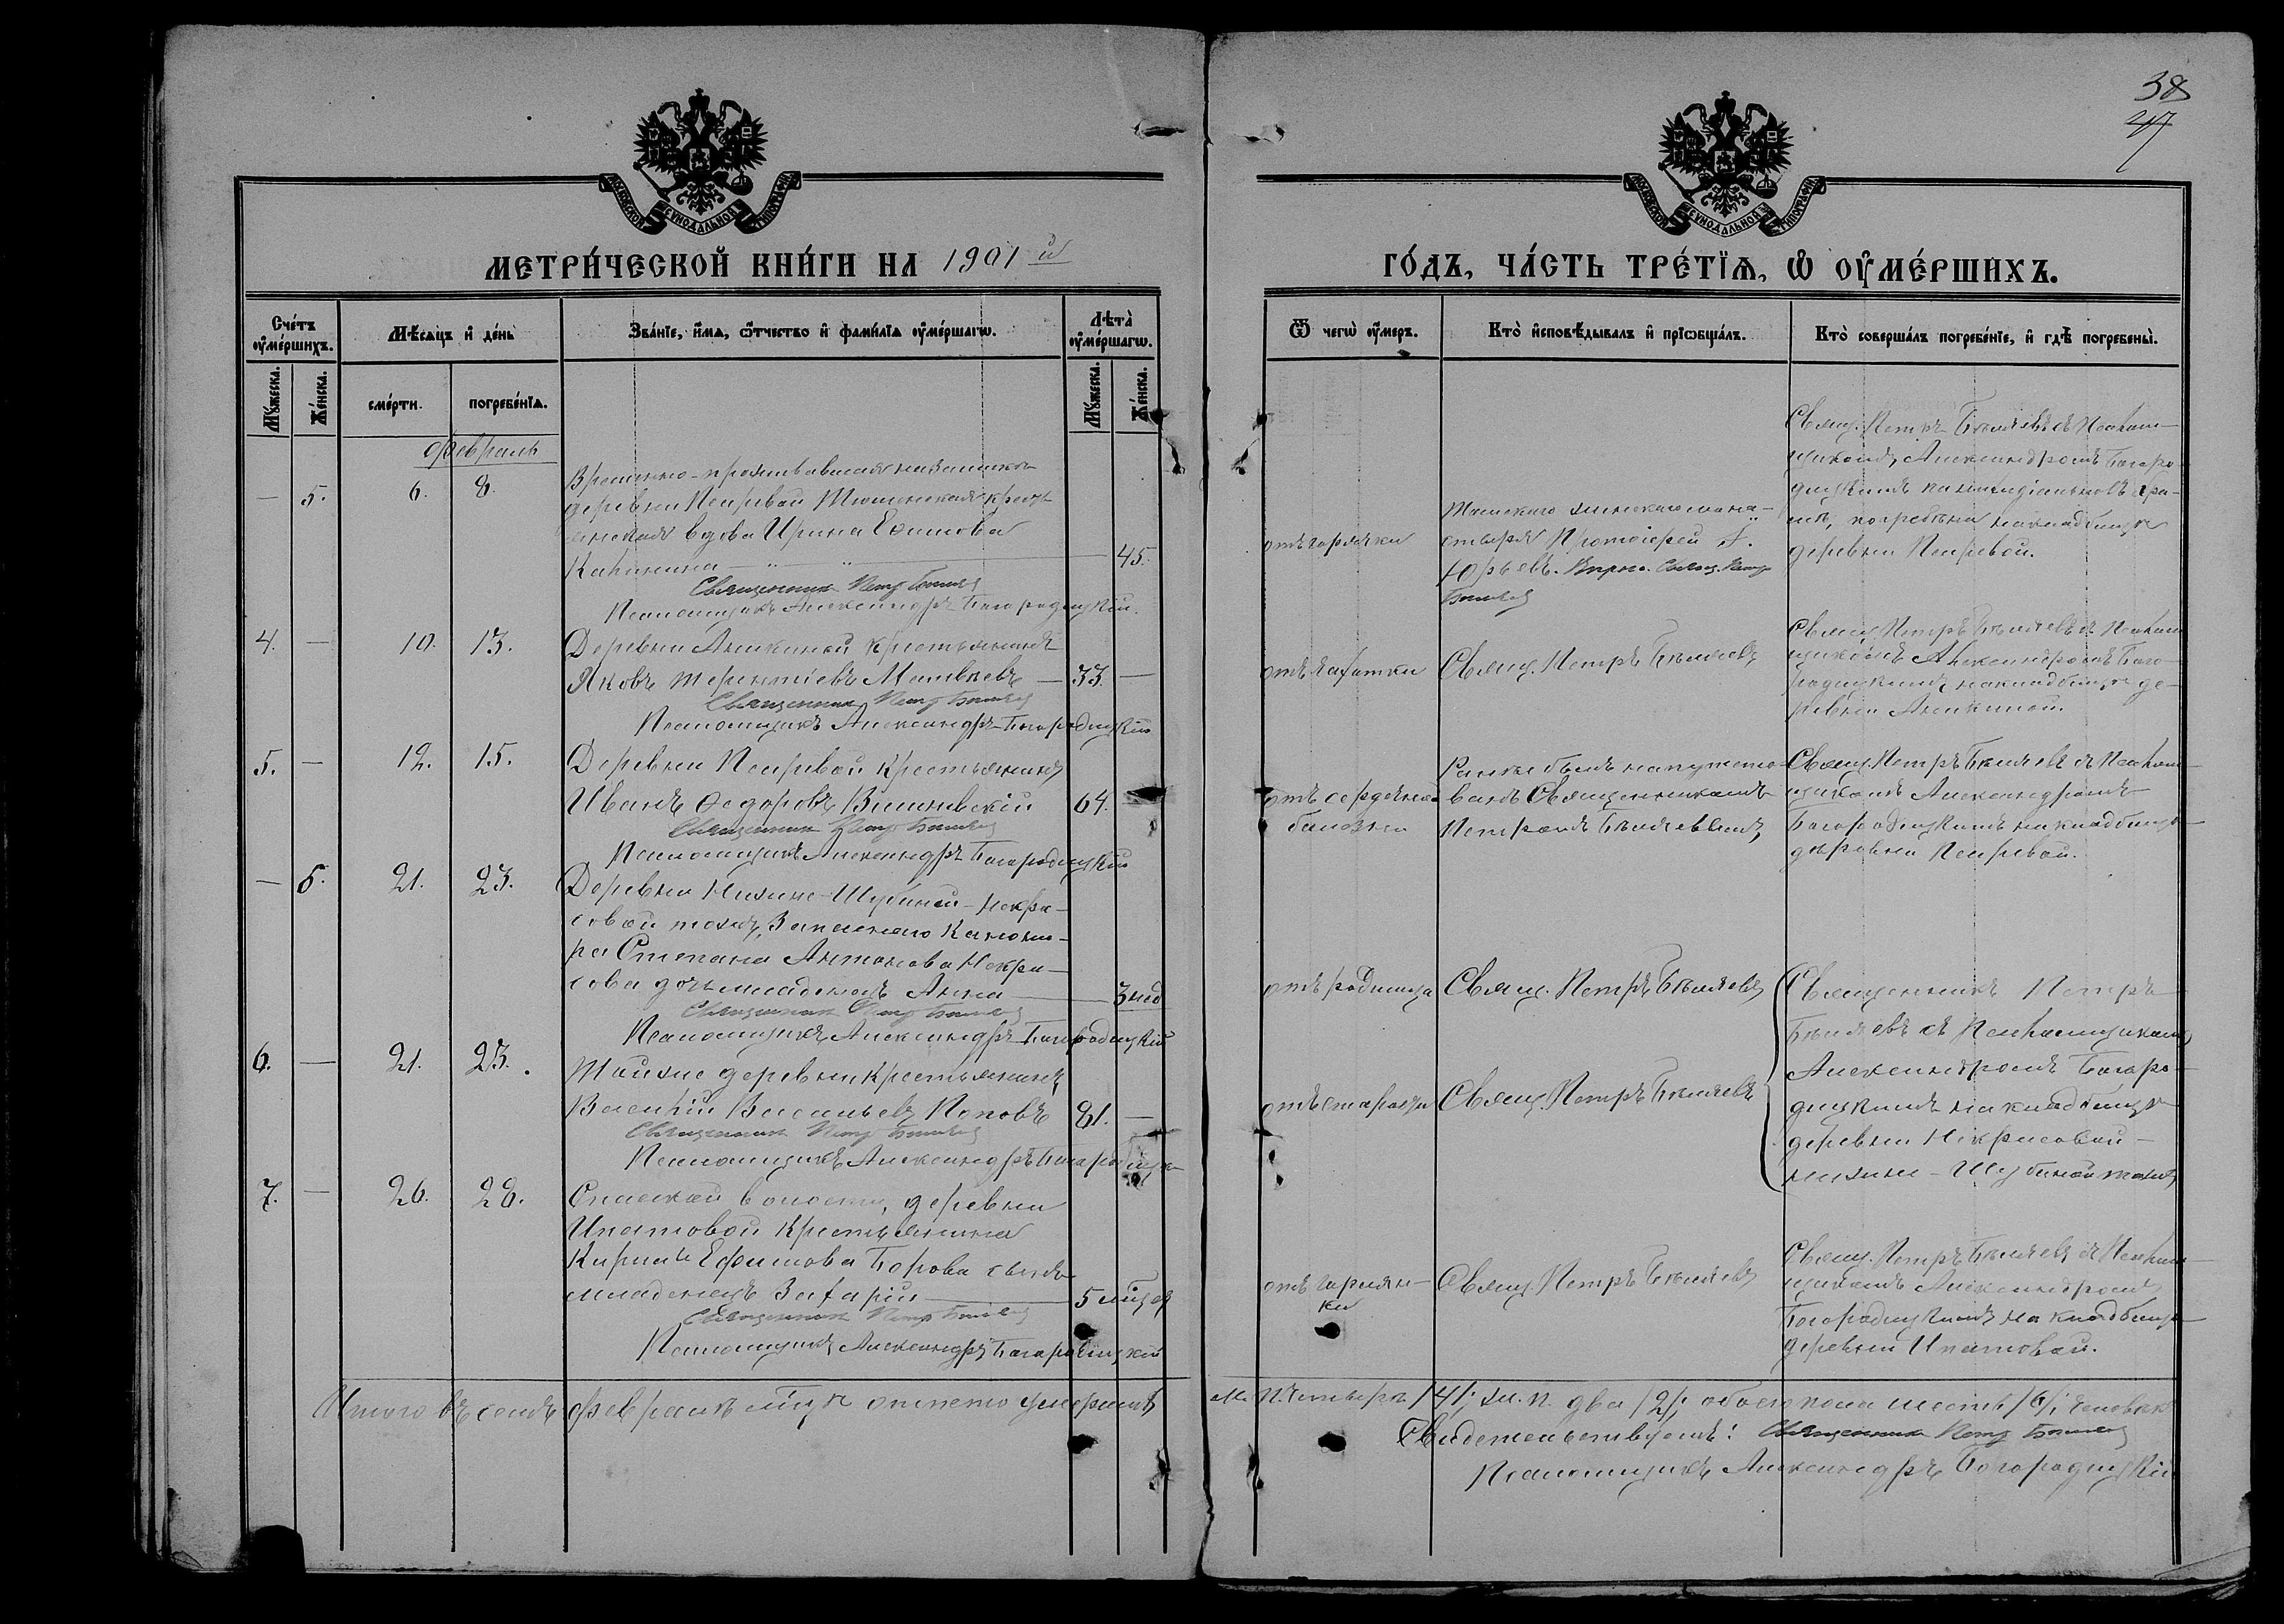 38
47
МЕТРИ́ЧЕСКОЙ КНИ́ГИ НА 1901й
ГО́ДЪ, ЧА́СТЬ ТРЕ́ТЇѦ, Ѡ҆ ОУ҆МЕ́РШИХЪ.
Сче́тъ оу҆ме́ршихъ.
Мꙋ́жеска.
Же́нска.
Мѣ́сѧцъ и҆ де́нь
сме́рти.
погребе́нїѧ.
Зва́нїе, и҆́мѧ, ѻ҆́тчество и҆ фами́лїѧ оу҆ме́ршагѡ.
Лѣ́та оу҆ме́ршагѡ.
Мꙋ́жеска.
Же́нска.
Ѿ чегѡ̀ оу҆́меръ.
Кто̀ и҆сповѣ́дывалъ и҆ прїѡбща́лъ.
Кто̀ соверша́лъ погребе́нїе, и҆ гдѣ̀ погребены̀.
Февраль
— 5. 6. 8.
Временно-проживавшая на
деревни Писревой крестья-
янская вдова Ирина Ефимова
45.
Священник Петр Беляев
Псаломщикъ Александръ Богородицкій.
отъ горячки
Протоіерей
Юрьевъ. Свящ. Петр
Беляев
Свящ. Петръ Бѣляевъ съ Псалом-
щикомъ Александромъ Богоро-
дицкимъ
погребена на кладбищѣ
деревни
4. — 10. 13.
Деревни Аникиной крестьянинъ
Яковъ Терентіевъ Матвѣевъ — 33. —
Священник Петр Беляев
Псаломщикъ Александръ Богородицкій
отъ чахотки
Свящ. Петръ Бѣляевъ
Свящ. Петръ Бѣляевъ съ Псалом-
щикомъ Александромъ Бого-
родицкимъ на кладбищѣ де-
ревни Аникиной.
5. — 12. 15.
Деревни крестьянинъ
Иванъ Ѳедоровъ Вишневскій 64. —
Священник Петр Беляев
Псаломщикъ Александръ Богородицкій
отъ сердечной
болезни
былъ напутство-
ванъ Священникомъ
Петромъ Бѣляевымъ
Свящ. Петръ Бѣляевъ съ Псалом-
щикомъ Александромъ
Богородицкимъ на кладбищѣ
деревни
— 6. 21. 23.
Деревни Нижне-Шубиной-Некра-
совой тожъ, Запаснаго Канони-
ра Степана Антонова Некра-
сова дочь младенецъ Анна — 3 нед
Священник Петр Беляев
Псаломщикъ Александръ Богородицкій
отъ родимца
Свящ. Петръ Бѣляевъ
Священникъ Петръ
Бѣляевъ съ Псаломщикомъ
Александромъ Богоро-
дицкимъ на кладбищѣ
деревни Некрасовой-
нижне-Шубиной тожъ
6. — 21. 23.
Тойже деревни крестьянинъ
Василій Васильевъ Поповъ 81. —
Священник Петр Беляев
Псаломщикъ Александръ
отъ старости
Свящ. Петръ Бѣляевъ
7. — 26. 28.
Спасской волости, деревни
Ипатовой крестьянина
Кирила Ефимова Борова сынъ
младенецъ Захарій — 5
Священник Петр Беляев
Псаломщикъ Александръ Богородицкій
отъ горячки
Свящ. Петръ Бѣляевъ
Свящ. Петръ Бѣляевъ съ Псалом-
щикомъ Александромъ
Богородицкимъ на кладбищѣ
деревни Ипатовой.
Итого въ семъ февралѣ мѣсяцѣ отпето умершихъ м. п. четыре /4/; ж. п. два /2/; обоего пола шесть /6/; человѣкъ
Свидетельствуемъ: Священник Петр Беляев
Псаломщикъ Александръ Богородицкій